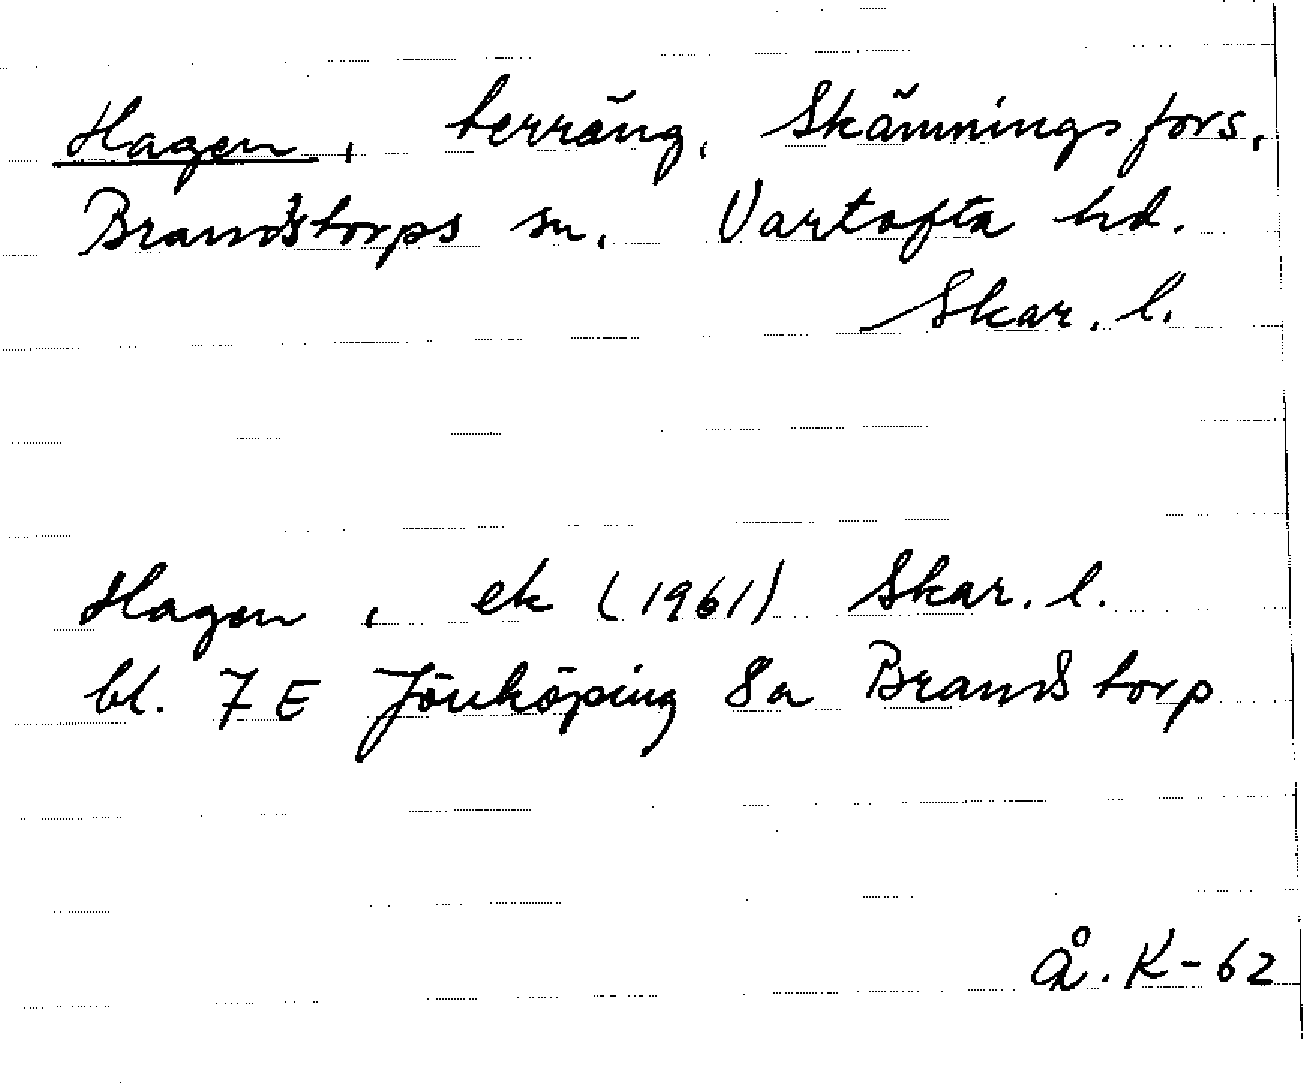 Hagen, terräng, Skämningsfors,
Brandstorps sn. Vartofta hd.
Skar. l.
Hagen, ek (1961) Skar. l.
bl. 7 E Jönköping 8a Brandstorp
Å. K-62